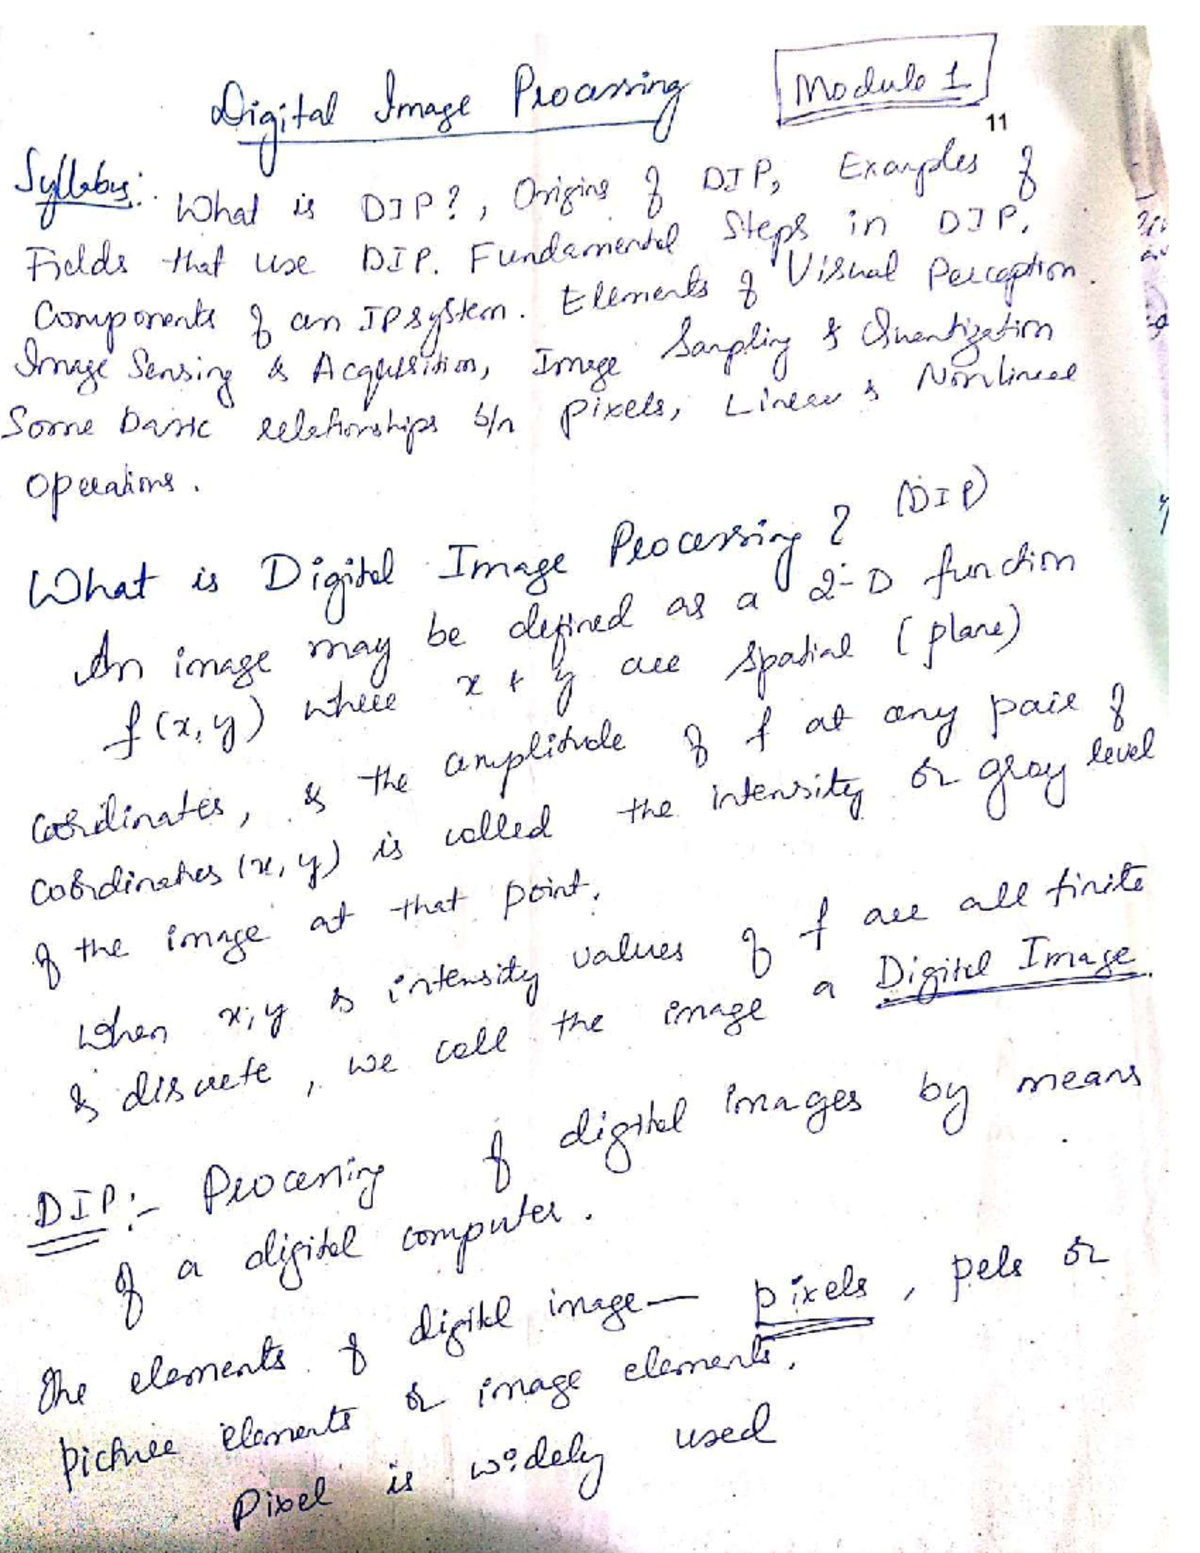 Digital Image Processing
Module 1
11
Syllabus:- What is DIP?, Origins of DIP, Examples of
Fields that use DIP. Fundamental Steps in DIP,
Components of an IP system. Elements of Visual Perception.
Image Sensing & Acquisition, Image Sampling & Quantization
Some basic relationships b/n pixels, Linear & Nonlinear
operations.
What is Digital Image Processing? (DIP)
An image may be defined as a 2-D function
f(x,y) where x & y are spatial (plane)
coordinates, & the amplitude of f at any pair of
coordinates (x,y) is called the intensity or gray level
of the image at that point.
When x,y & intensity values of f are all finite
& discrete, we call the image a Digital Image.
DIP:- Processing of digital images by means
of a digital computer.
The elements of digital image — pixels, pels or
picture elements or image elements.
Pixel is widely used